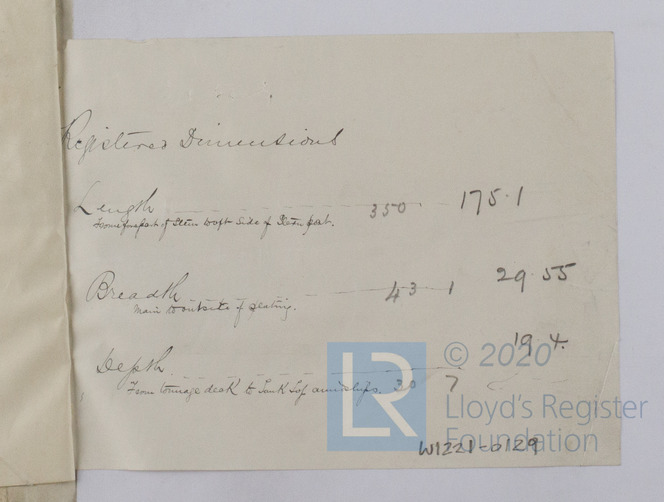 Registered Dimensions
Length 350 175.1
From forepart of Stem to aft side of Stern post.
Breadth 43 1 29.55
main to outside of plating.
19.4
Depth
From tonnage deck to Tank Top amidships. 30 7
LR © 2020
Lloyd's Register
Foundation
W1221-0129